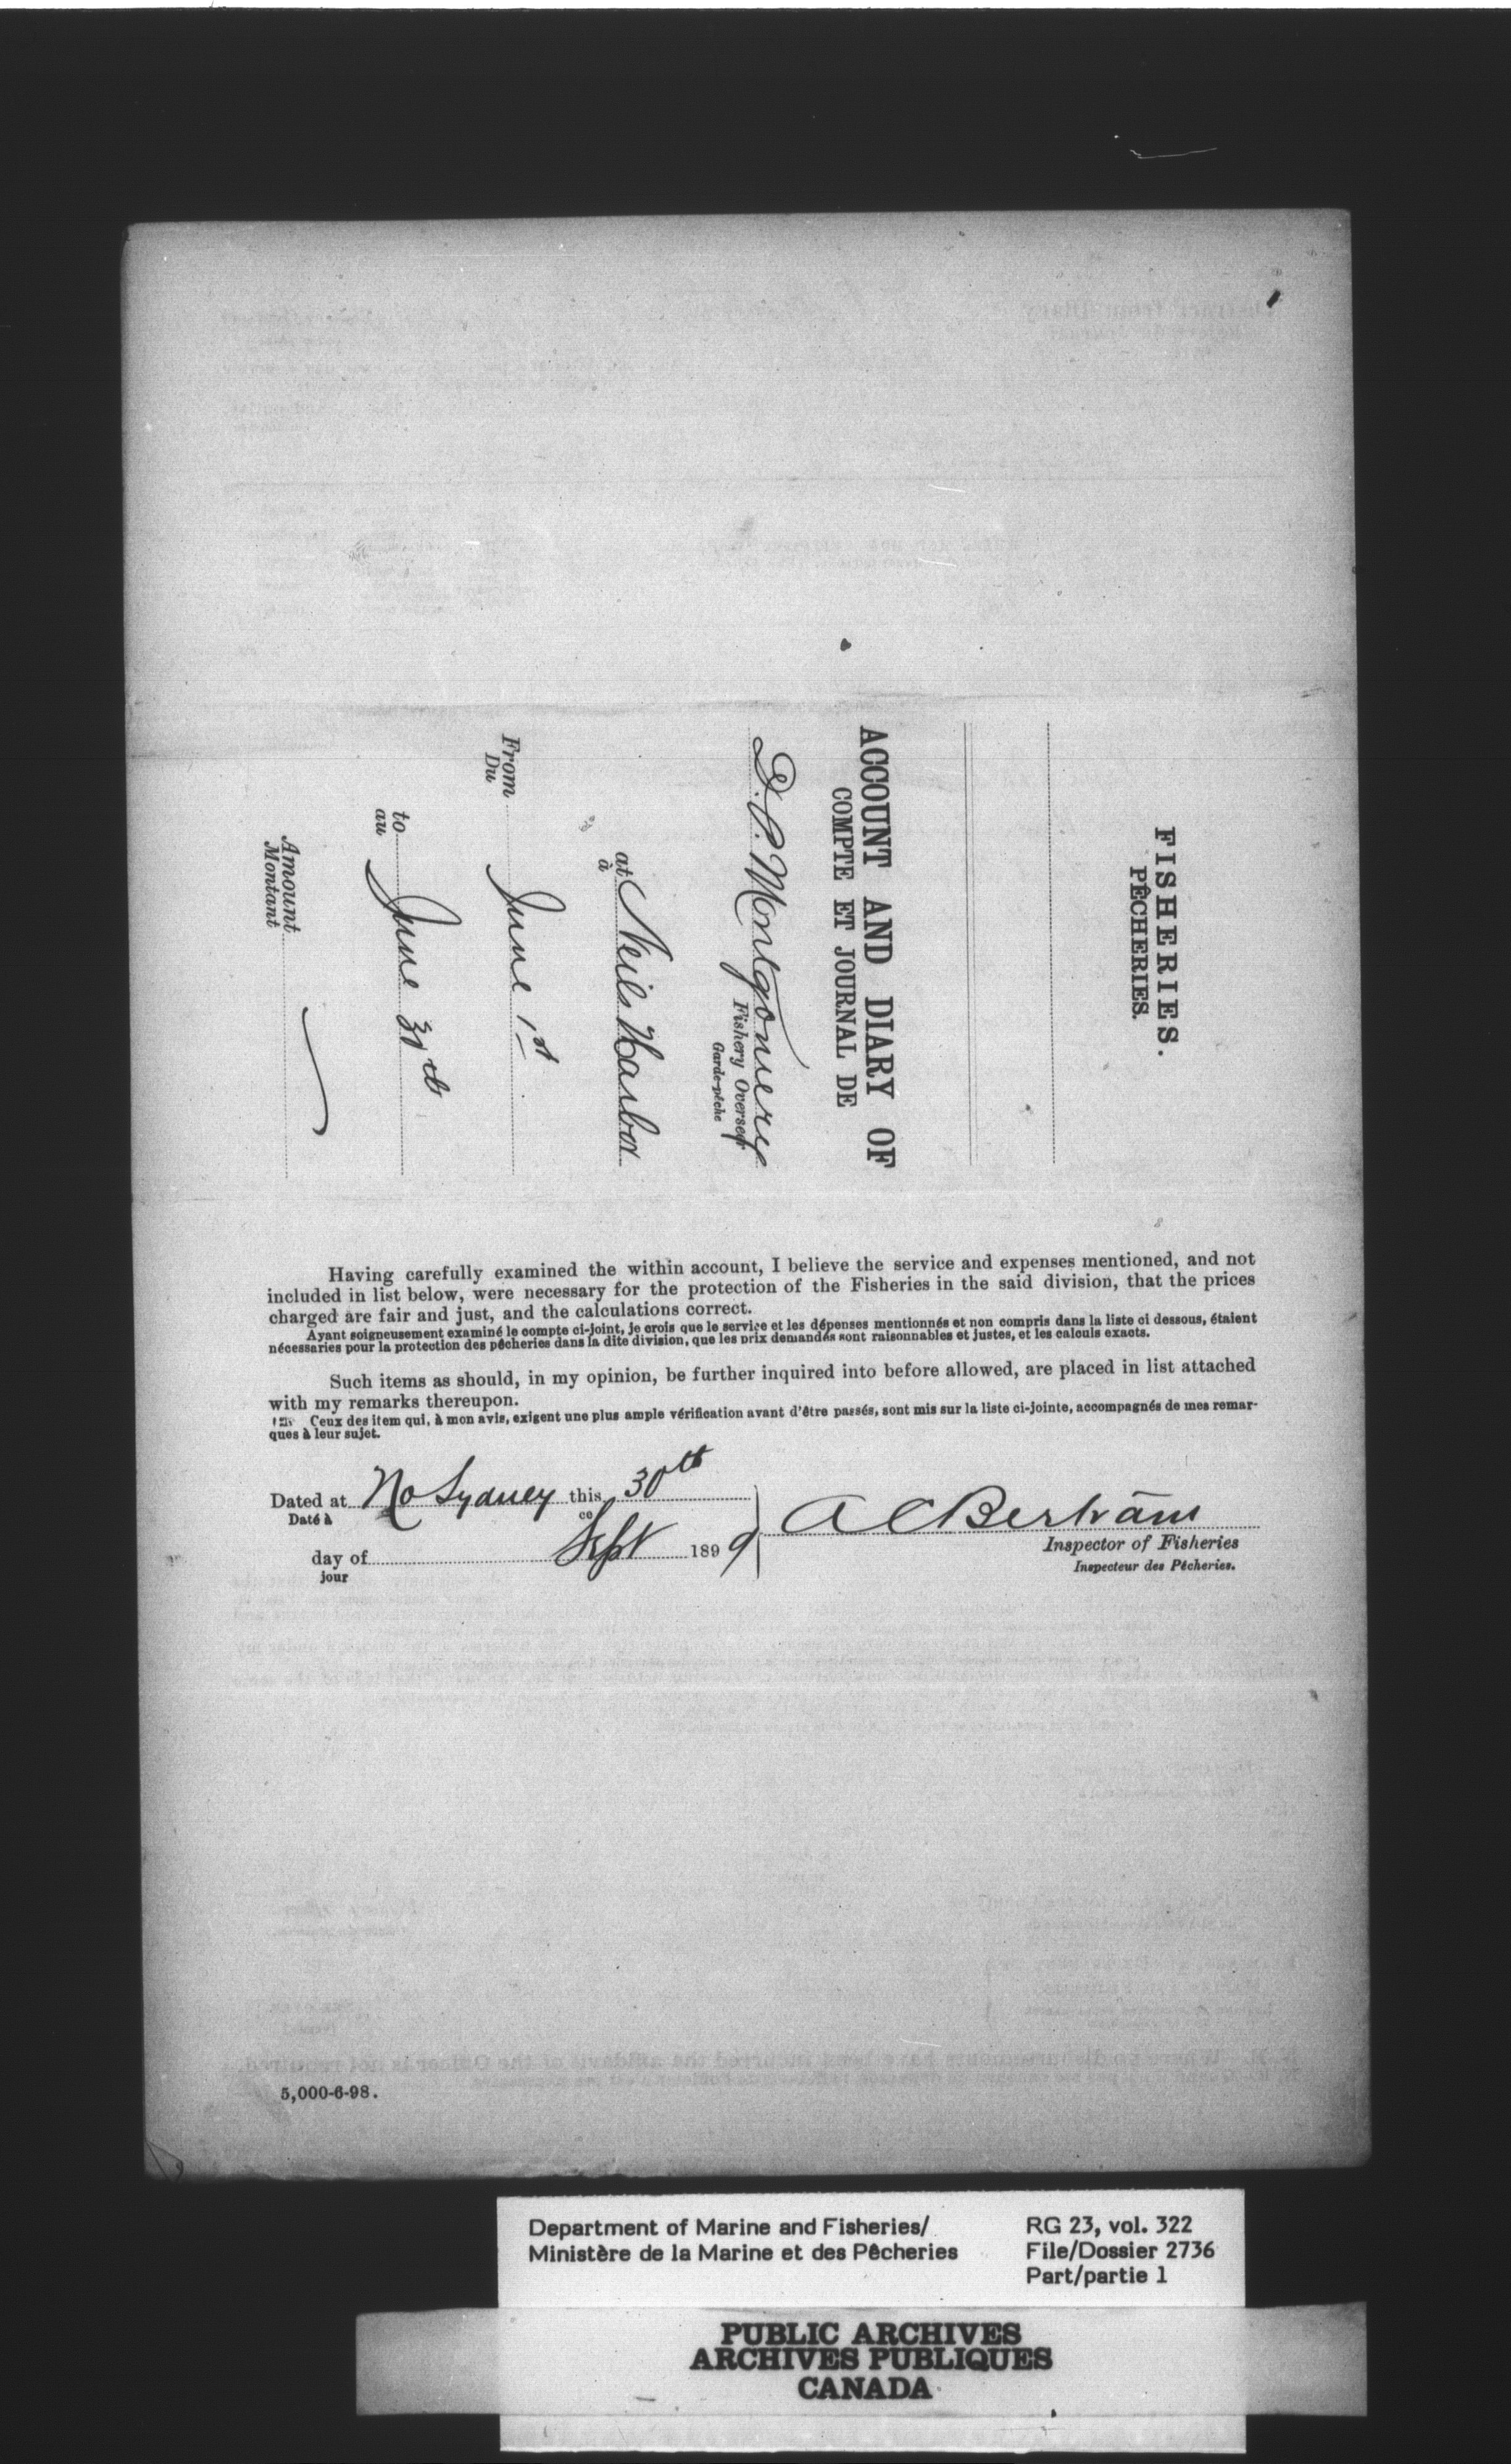 FISHERIES.
PÊCHERIES.
ACCOUNT AND DIARY OF
COMPTE ET JOURNAL DE
D. P. Montgomery
Fishery Overseer
Garde-pêche
at Neils Harbor
à
From June 1st
Du
to June 30th
au
Amount
Montant
Having carefully examined the within account, I believe the service and expenses mentioned, and not
included in list below, were necessary for the protection of the Fisheries in the said division, that the prices
charged are fair and just, and the calculations correct.
Ayant soigneusement examiné le compte ci-joint, je crois que le service et les dépenses mentionnés et non compris dans la liste ci dessous, étaient
nécessaries pour la protection des pêcheries dans la dite division, que les prix demandés sont raisonnables et justes, et les calculs exacts.
Such items as should, in my opinion, be further inquired into before allowed, are placed in list attached
with my remarks thereupon.
Ceux des item qui, à mon avis, exigent une plus ample vérification avant d'être passés, sont mis sur la liste ci-jointe, accompagnés de mes remar-
ques à leur sujet.
Dated at No Sydney this 30th
Daté à ce
day of Sept 1899
jour
A C Bertram
Inspector of Fisheries
Inspecteur des Pêcheries.
5,000-6-98.
Department of Marine and Fisheries/
Ministère de la Marine et des Pêcheries
RG 23, vol. 322
File/Dossier 2736
Part/partie 1
PUBLIC ARCHIVES
ARCHIVES PUBLIQUES
CANADA